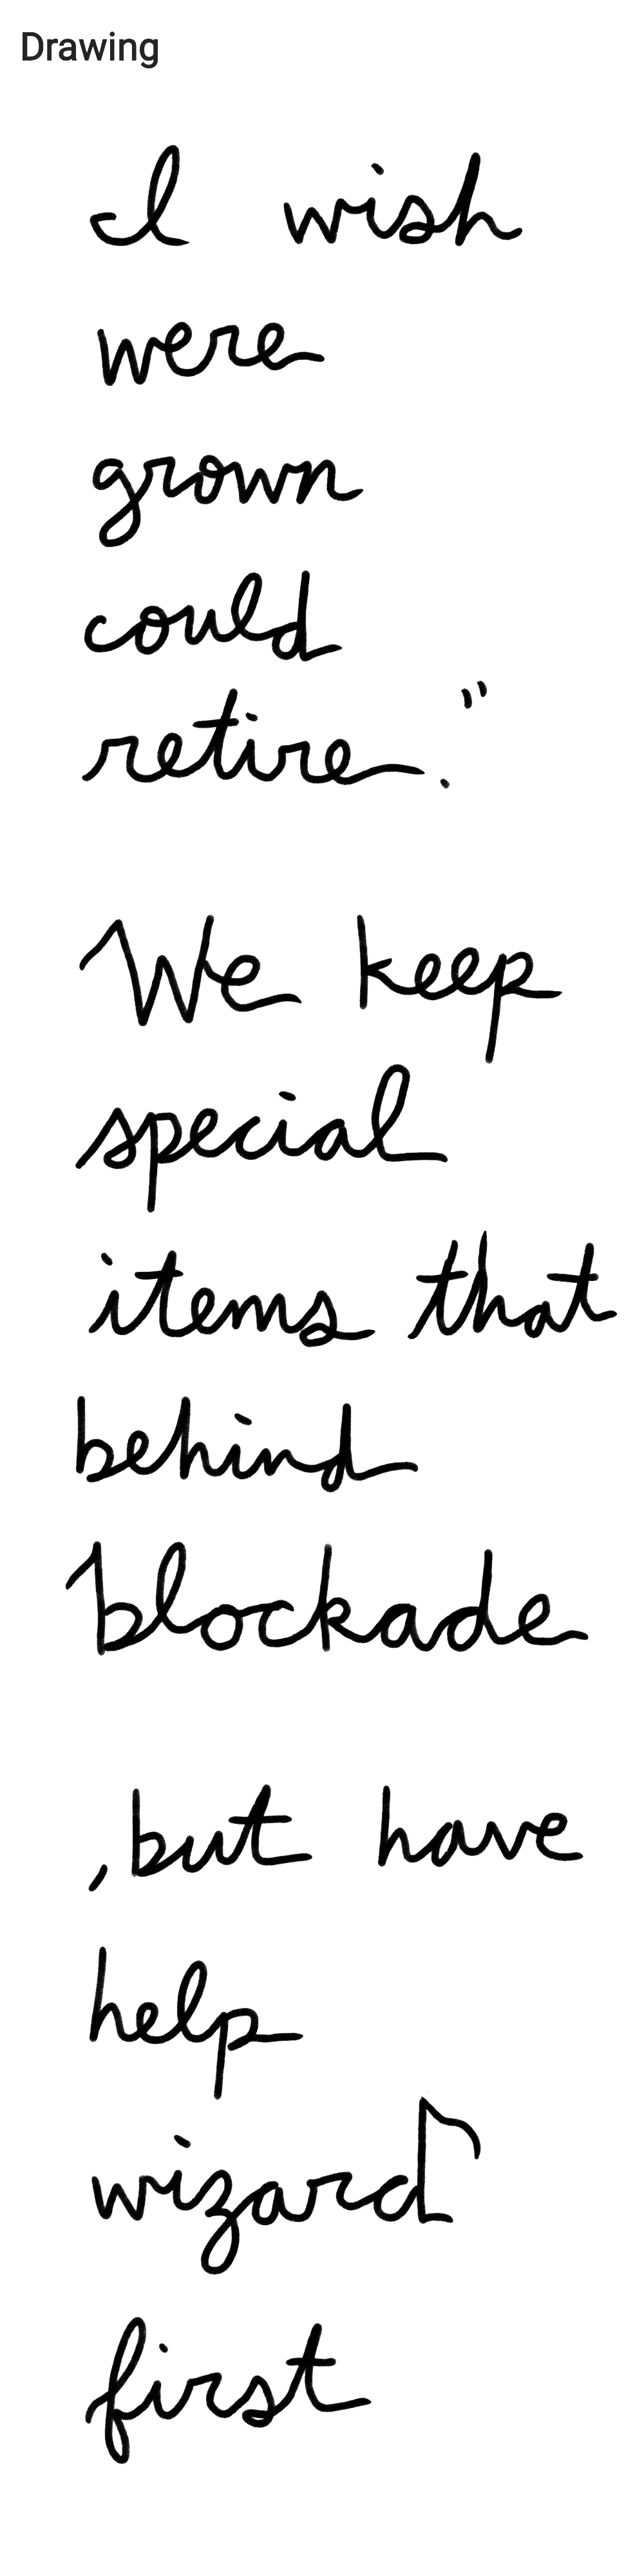 Drawing
I wish
were
grown
could
retire."
We keep
special
items that
behind
blockade
, but have
help
wizard
first